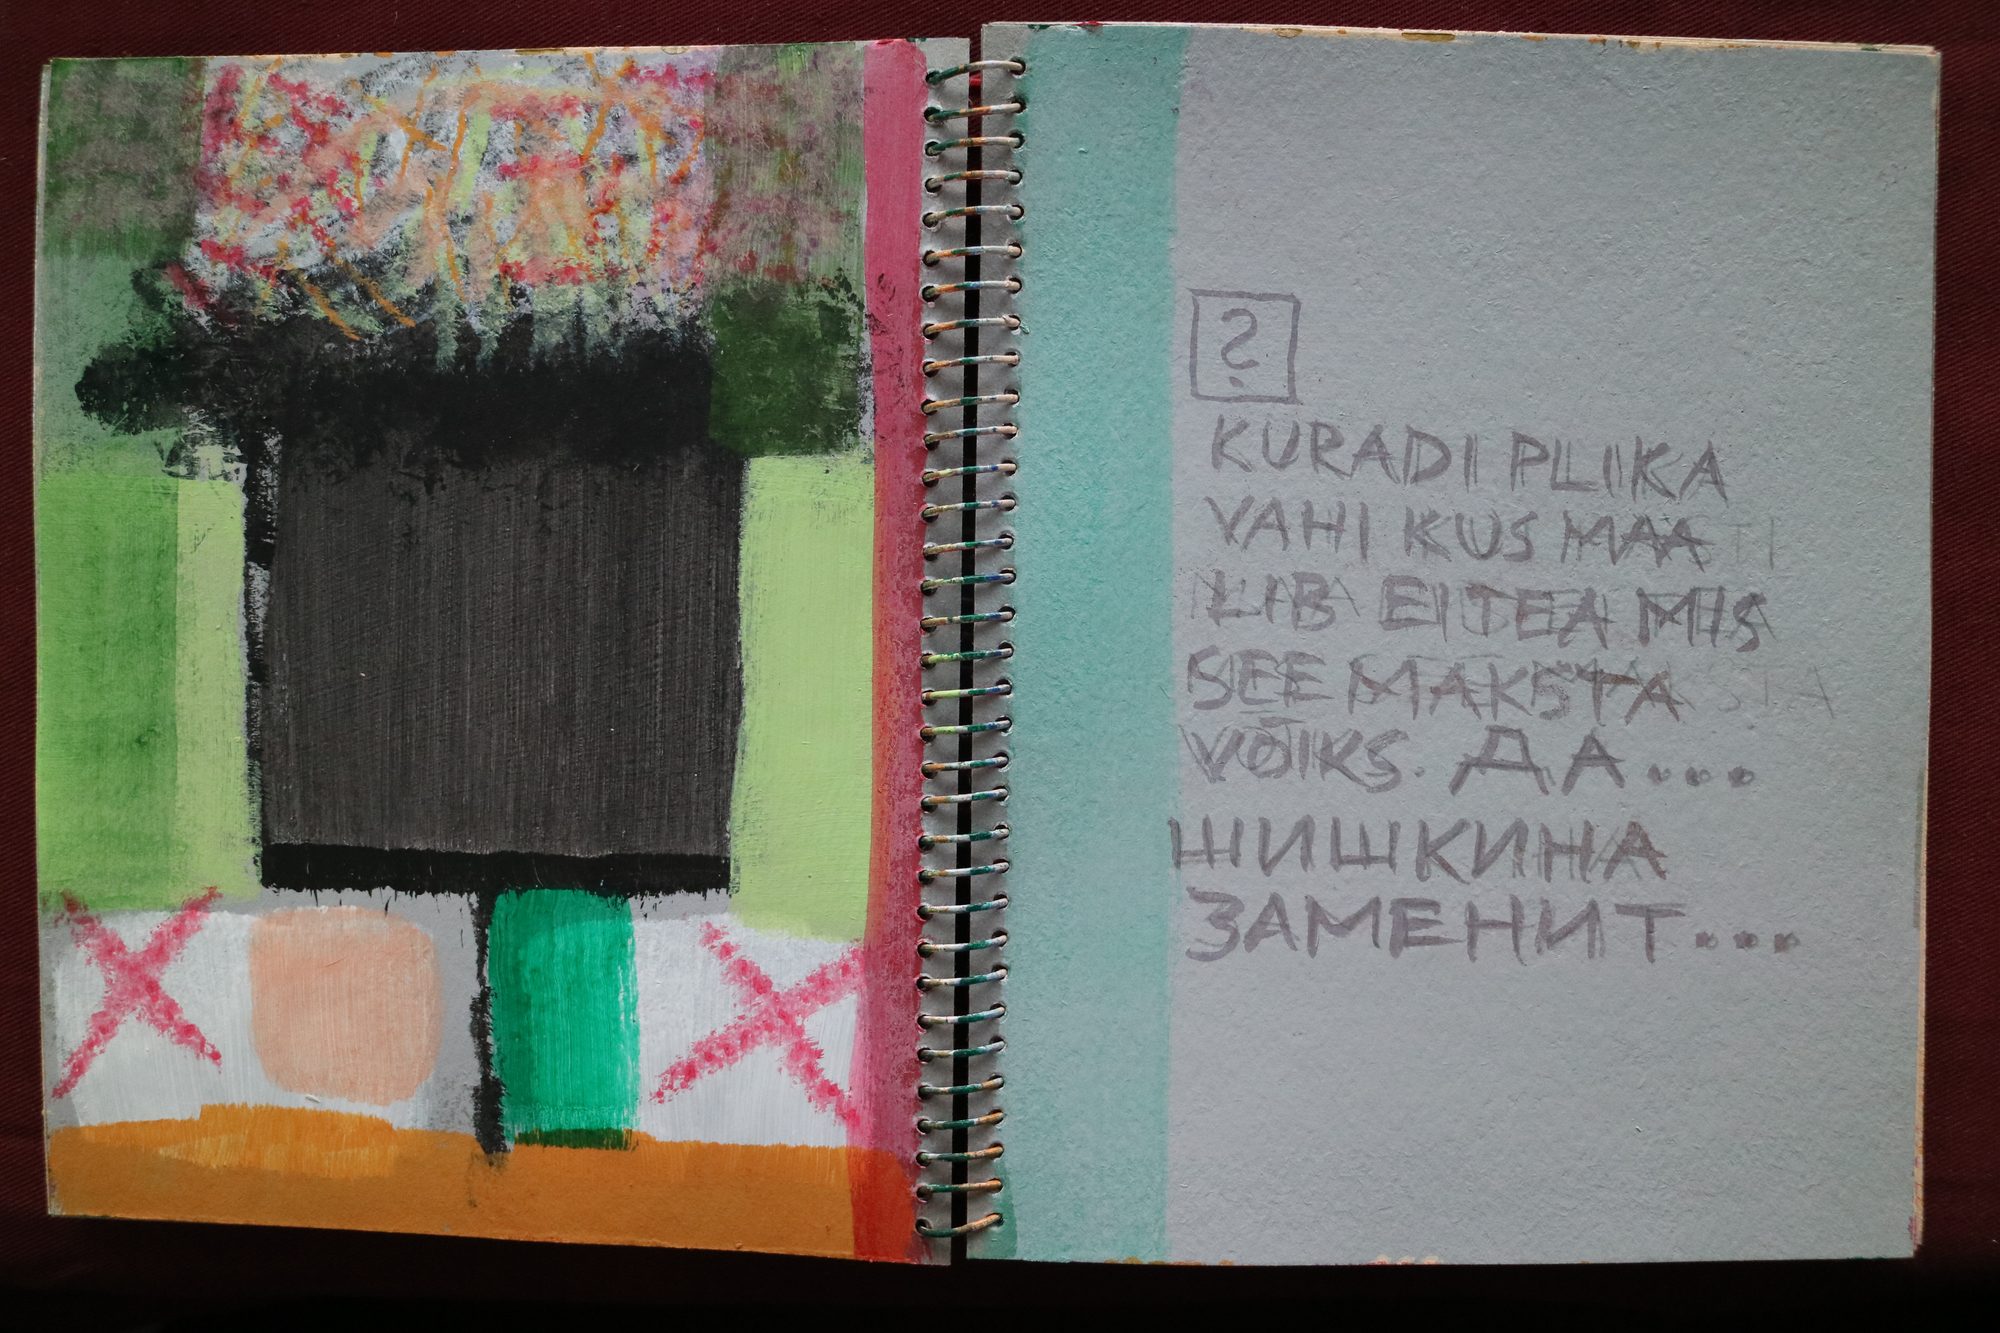 ?
KURADI PLIKA
VAHI KUS MAA
LIB EI TEA MIS
SEE MAKSTA
VÕIKS. ДА...
ШИШКИНА
ЗАМЕНИТ...